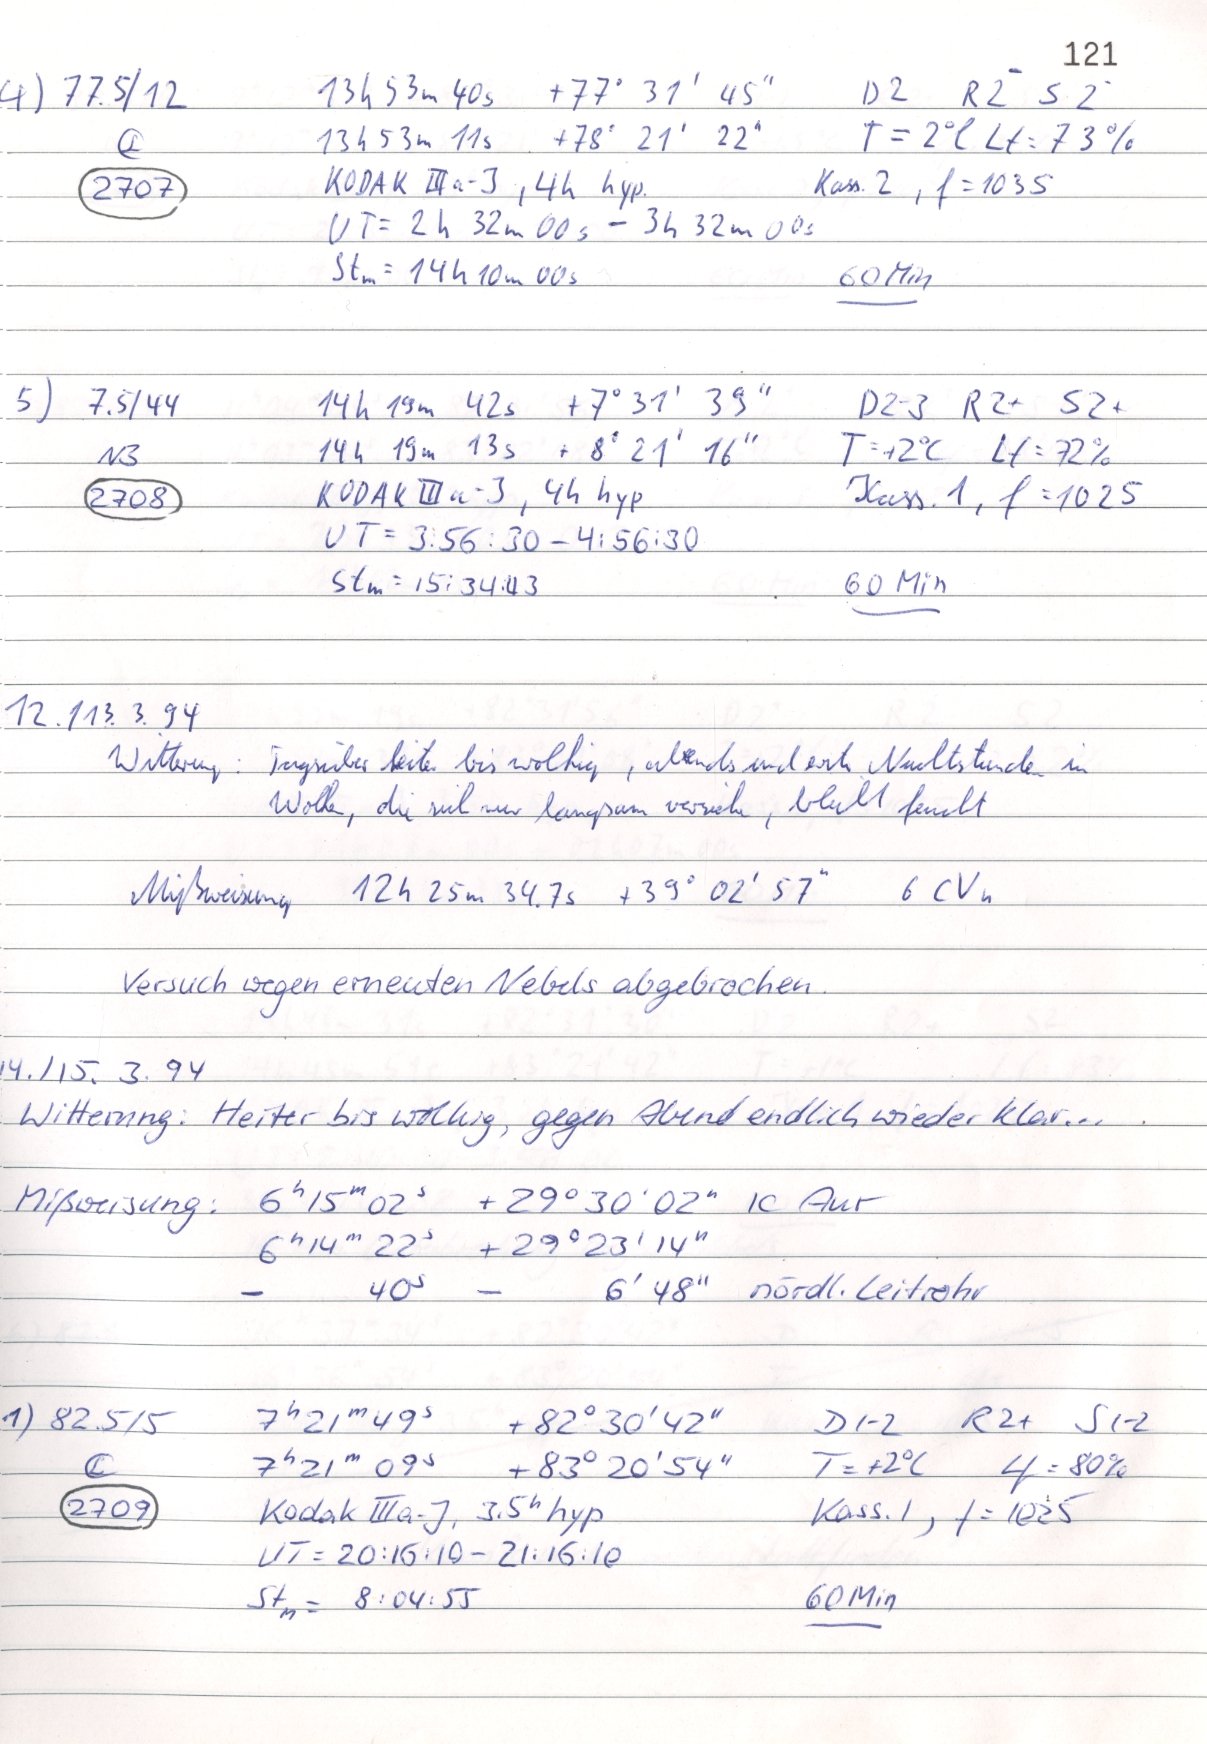 121
4) 77.5/12 13h 53m 40s +77° 31' 45" D2 R2- S2-
C 13h 53m 11s +78° 21' 22" T = 2°C Lf = 73%
2707 KODAK IIIa-J, 4h hyp. Kass. 2, f = 1035
UT = 2h 32m 00s - 3h 32m 00s
Stm = 14h 10m 00s 60 Min
5) 7.5/44 14h 19m 42s +7° 31' 39" D2-3 R2+ S2+
NB 14h 19m 13s + 8° 21' 16" T = +2°C Lf = 72%
2708 KODAK IIIa-J, 4h hyp Kass. 1, f = 1025
UT = 3:56:30 - 4:56:30
Stm = 15:34:43 60 Min
12./13. 3. 94
Witterung: Tagsüber heiter bis wolkig, abends und erste Nachtstunden in
Wolken, die sich nur langsam verziehen, bleibt feucht
Mißweisung 12h 25m 34.7s +39° 02' 57" 6 CVn
Versuch wegen erneuten Nebels abgebrochen.
14./15. 3. 94
Witterung: Heiter bis wolkig, gegen Abend endlich wieder klar...
Mißweisung: 6h 15m 02s +29° 30' 02" κ Aur
6h 14m 22s +29° 23' 14"
- 40s - 6' 48" nördl. Leitrohr
1) 82.5/5 7h 21m 49s +82° 30' 42" D1-2 R2+ S1-2
C 7h 21m 09s +83° 20' 54" T = +2°C Lf = 80%
2709 Kodak IIIa-J, 3.5h hyp Kass. 1, f = 1025
UT = 20:16:10 - 21:16:10
Stm = 8:04:55 60 Min